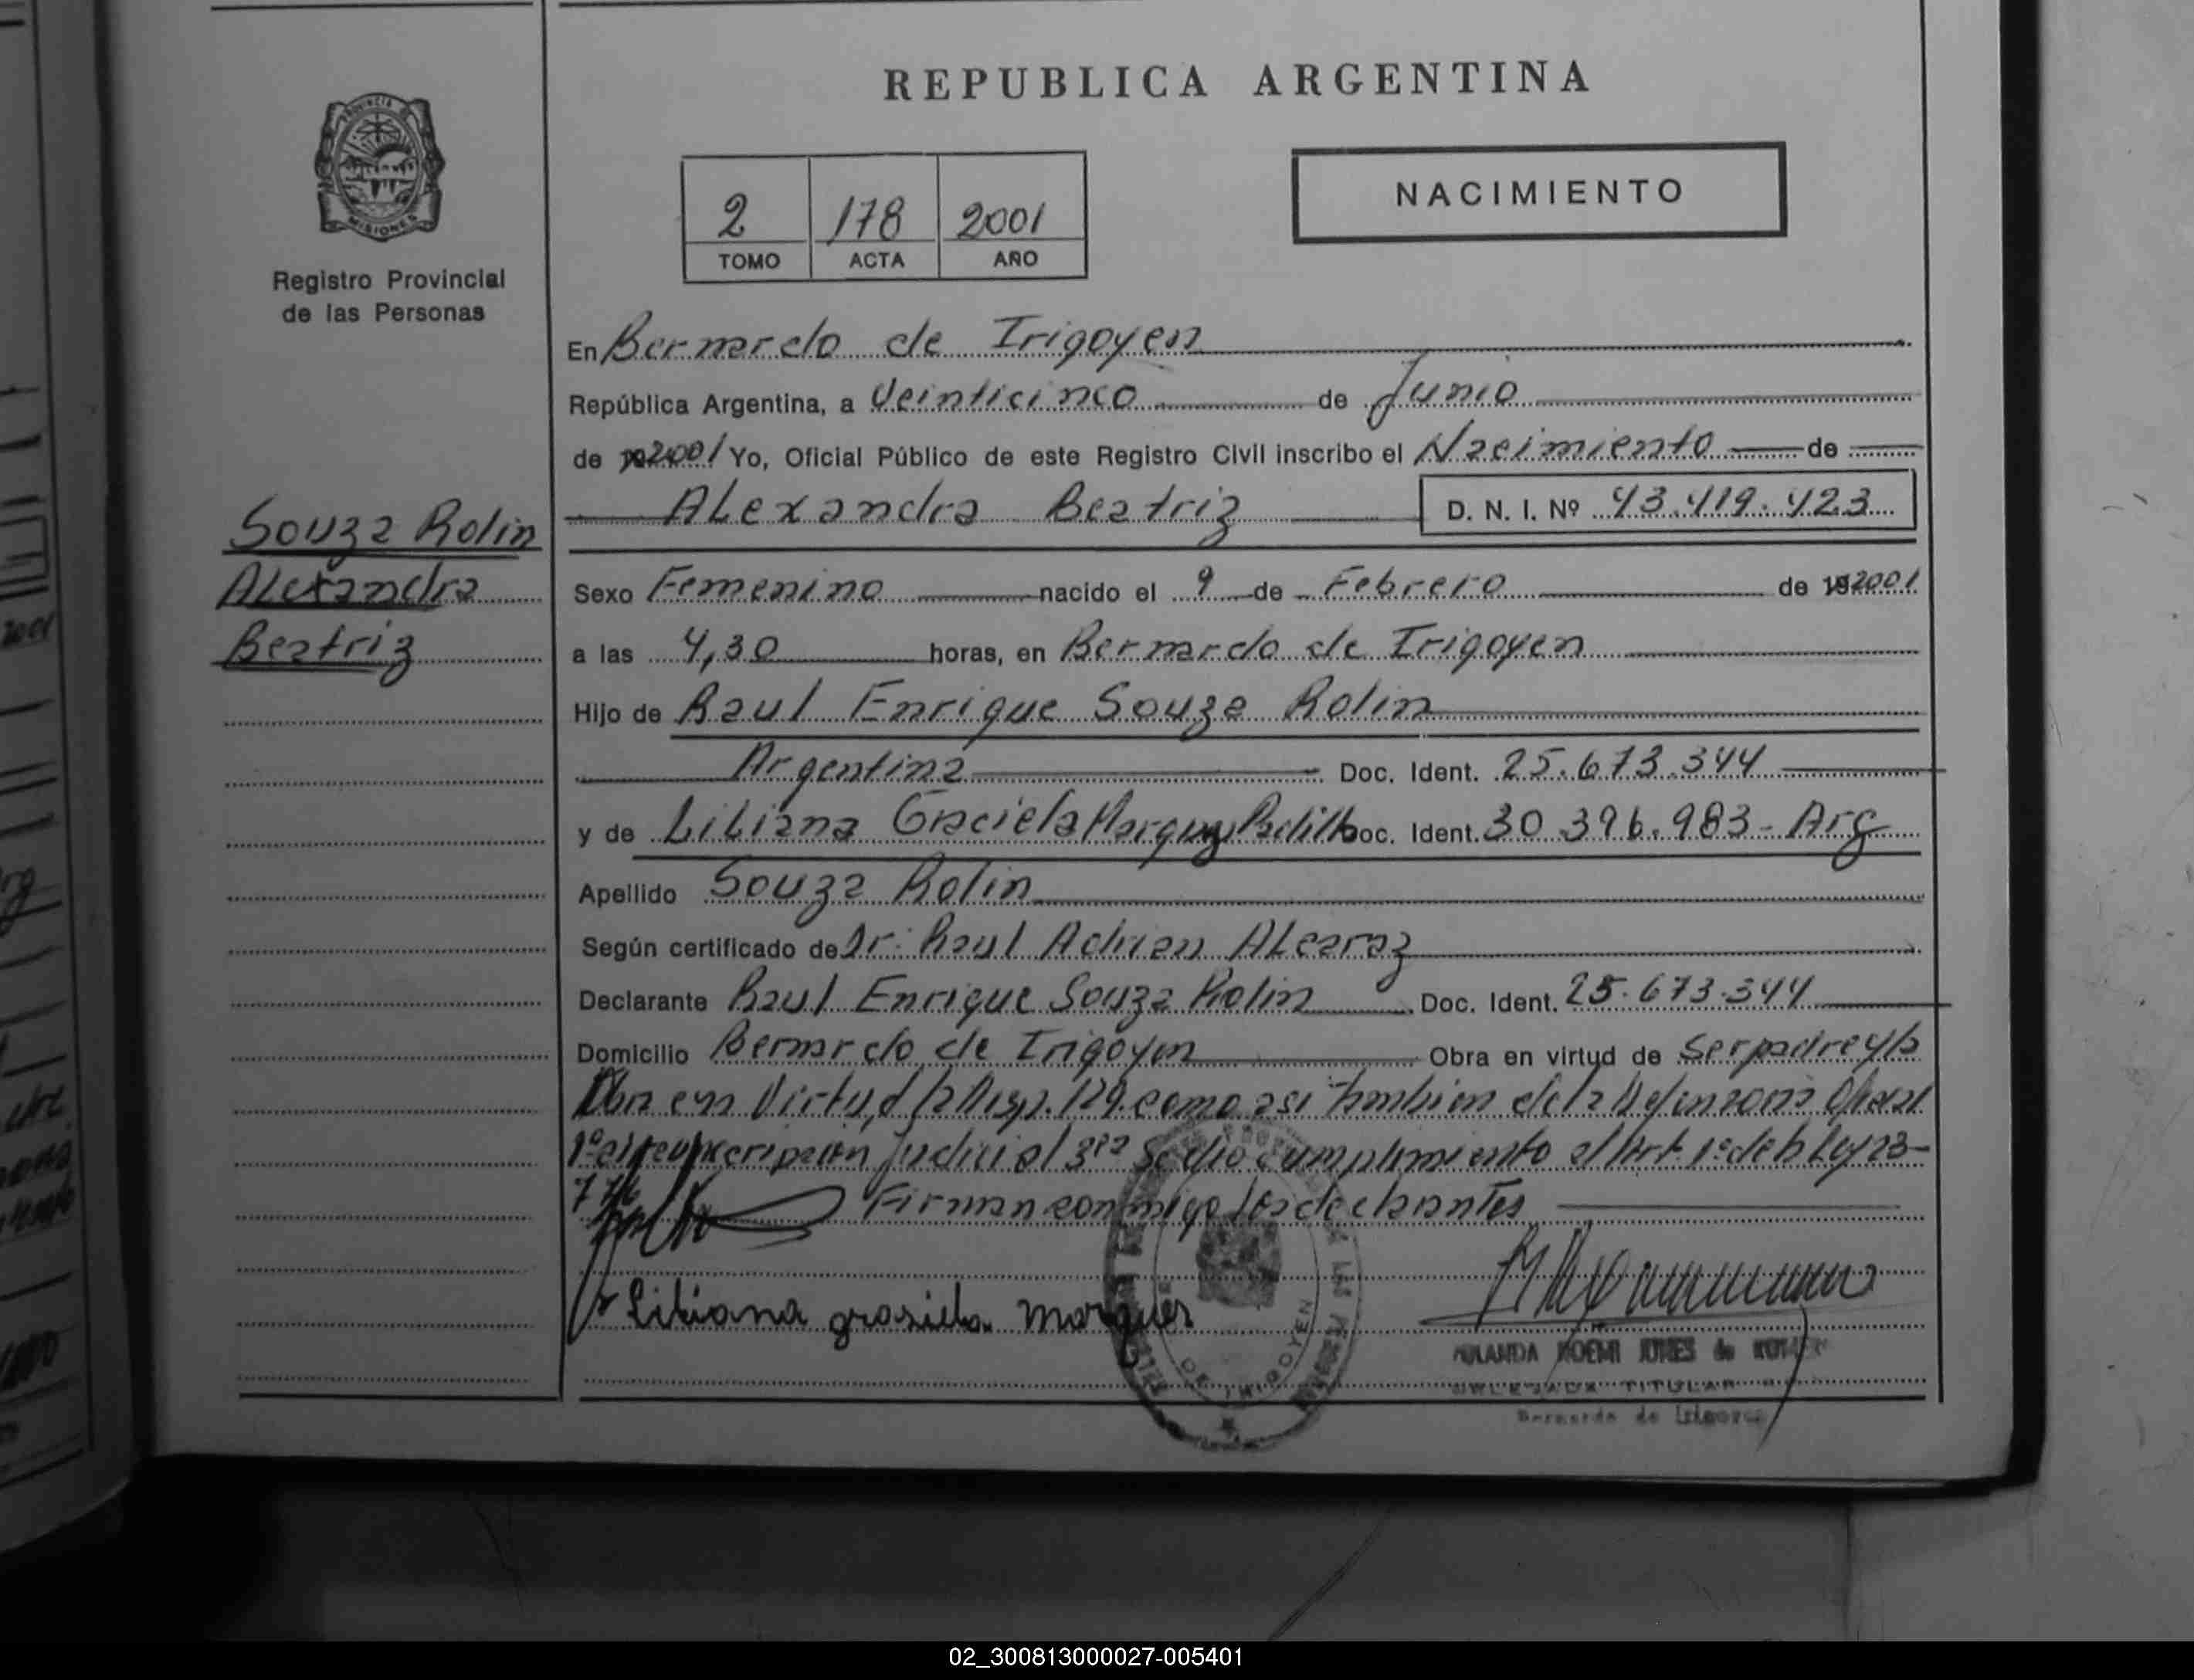 REPUBLICA ARGENTINA
PROVINCIA DE
MISIONES
Registro Provincial
de las Personas
2 178 2001
TOMO ACTA AÑO
NACIMIENTO
En Bernardo de Irigoyen
República Argentina, a Veinticinco de Junio
de 2001 Yo, Oficial Público de este Registro Civil inscribo el Nacimiento de
Alexandra Beatriz D. N. I. Nº 43.419.423
Souza Rolin
Alexandra
Beatriz
Sexo Femenino nacido el 9 de Febrero de 192001
a las 4,30 horas, en Bernardo de Irigoyen
Hijo de Raul Enrique Souza Rolin
Argentina Doc. Ident. 25.673.344
y de Liliana Graciela Marquez Padilla Doc. Ident. 30.396.983- Arg
Apellido Souza Rolin
Según certificado de Dr. Raul Adrian Alcaraz
Declarante Raul Enrique Souza Rolin Doc. Ident. 25.673.344
Domicilio Bernardo de Irigoyen Obra en virtud de Ser padre y la
Obra en Virtud Disp. 129. como asi tambien de la Defensoria Oficial
Judicial 3ra Se dio cumplimiento al Art. 1º de la Ley 23-
776 Firman conmigo los declarantes
Liliana grasiela marques
NOEMI JONES de
DELEGADA TITULAR
Bernardo de Irigoyen
DE IRIGOYEN
02_300813000027-005401